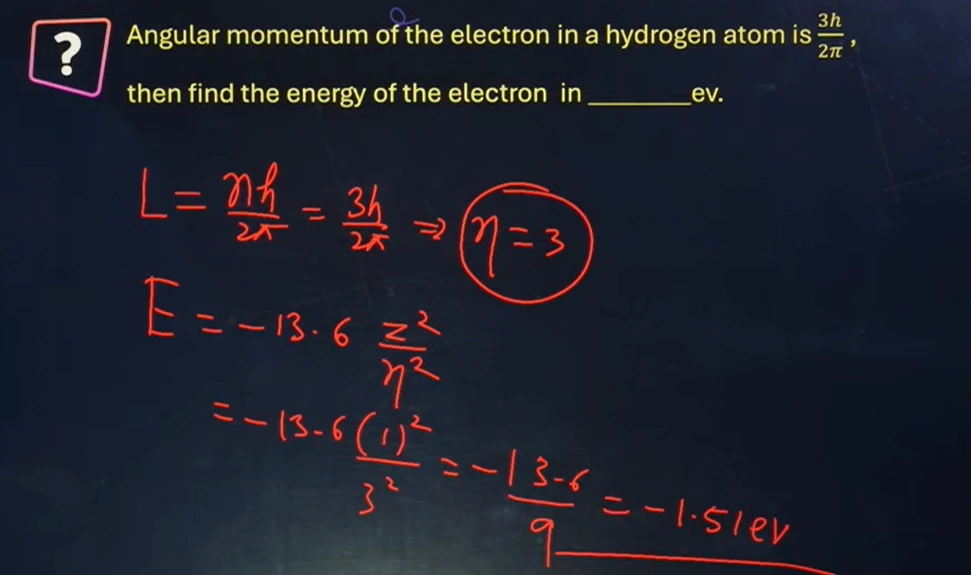 ?
Angular momentum of the electron in a hydrogen atom is 3h/2π,
then find the energy of the electron in _______ev.
L = nh/2π = 3h/2π ⇒ n = 3
E = -13.6 z²/n²
= -13.6 (1)²/3² = -13.6/9 = -1.51ev